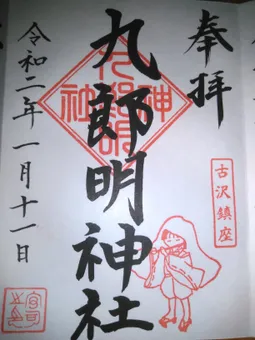 奉拝
古沢鎮座
九郎明神社
令和二年一月十一日